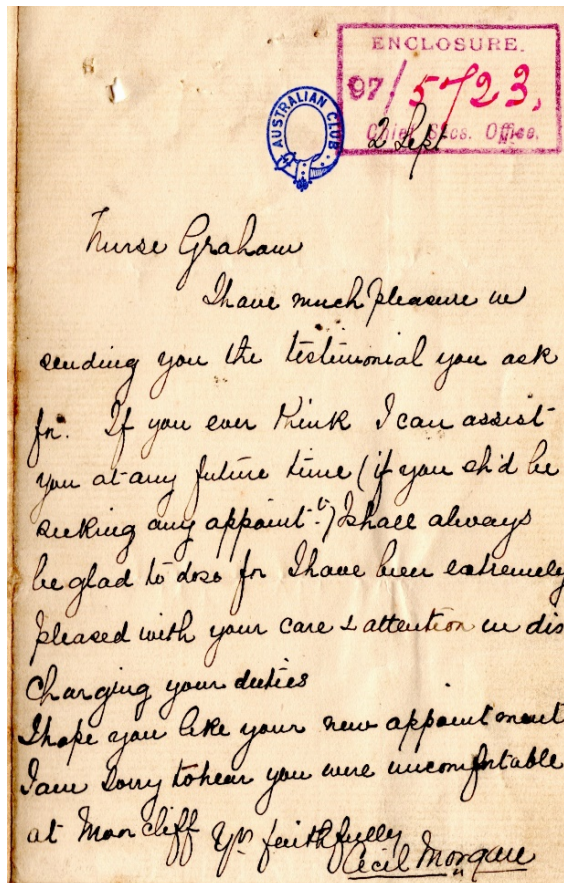 ENCLOSURE.
97/5723,
Chief Secs. Office.
AUSTRALIAN CLUB
2 Sept
Nurse Graham
I have much pleasure in
sending you the testimonial you ask
for. If you ever think I can assist
you at any future time (if you sh'd be
seeking any appoint-t) I shall always
be glad to do so for I have been extremely
pleased with your care & attention in dis
charging your duties
I hope you like your new appointment
I am sorry to hear you were uncomfortable
at Moorcliff Yrs faithfully
Cecil Morgan